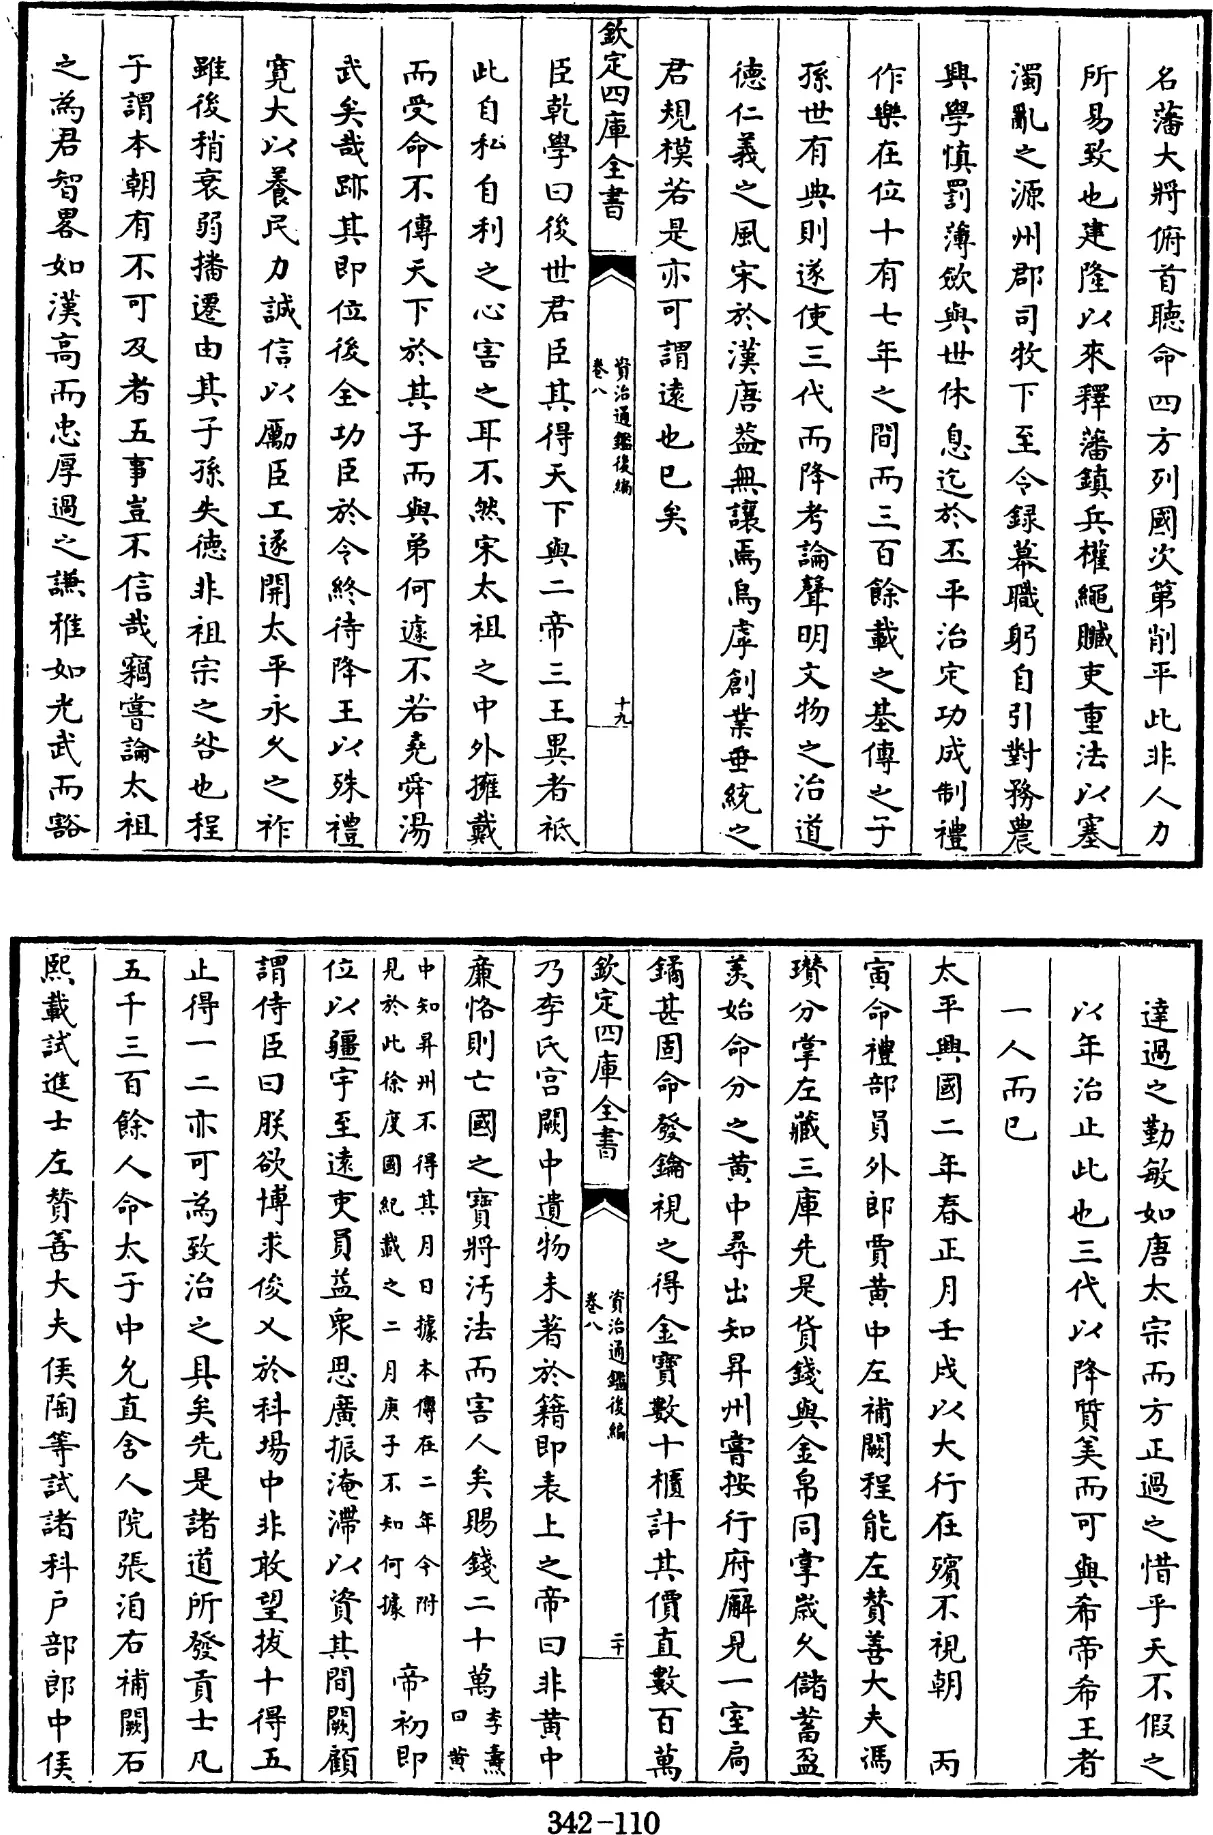 名藩大將俯首聽命四方列國次第削平此非人力
所易致也建隆以來釋藩鎮兵權繩贓吏重法以塞
濁亂之源州郡司牧下至令録幕職躬自引對務農
興學慎罰薄歛與世休息迄於丕平治定功成制禮
作樂在位十有七年之間而三百餘載之基傳之子
孫世有典則遂使三代而降考論聲明文物之治道
德仁義之風宋於漢唐葢無讓焉烏虖創業垂統之
君規模若是亦可謂遠也已矣
欽定四庫全書
資治通鑑後編
卷八
十九
臣乾學曰後世君臣其得天下與二帝三王異者祗
此自私自利之心害之耳不然宋太祖之中外擁戴
而受命不傳天下於其子而與弟何遽不若堯舜湯
武矣哉跡其即位後全功臣於令終待降王以殊禮
寛大以養民力誠信以勵臣工遂開太平永久之祚
雖後稍衰弱播遷由其子孫失德非祖宗之咎也程
子謂本朝有不可及者五事豈不信哉竊嘗論太祖
之為君智畧如漢高而忠厚過之謙雅如光武而豁
達過之勤敏如唐太宗而方正過之惜乎天不假之
以年治止此也三代以降質美而可與希帝希王者
一人而已
太平興國二年春正月壬戌以大行在殯不視朝 丙
寅命禮部員外郎賈黄中左補闕程能左贊善大夫馮
瓚分掌左藏三庫先是貨錢與金帛同掌歲久儲蓄盈
羨始命分之黄中尋出知昇州嘗按行府廨見一室扃
鐍甚固命發鑰視之得金寶數十櫃計其價直數百萬
欽定四庫全書
資治通鑑後編
卷八
二十
乃李氏宫闕中遺物未著於籍即表上之帝曰非黄中
廉恪則亡國之寶將汚法而害人矣賜錢二十萬
李燾
曰黄
中知昇州不得其月日據本傳在二年今附
見於此徐度國紀載之二月庚子不知何據
帝初即
位以疆宇至遠吏員益衆思廣振淹滯以資其間闕顧
謂侍臣曰朕欲博求俊乂於科場中非敢望拔十得五
止得一二亦可為致治之具矣先是諸道所發貢士凡
五千三百餘人命太子中允直舍人院張洎右補闕石
熙載試進士左贊善大夫侯陶等試諸科户部郎中侯
342-110